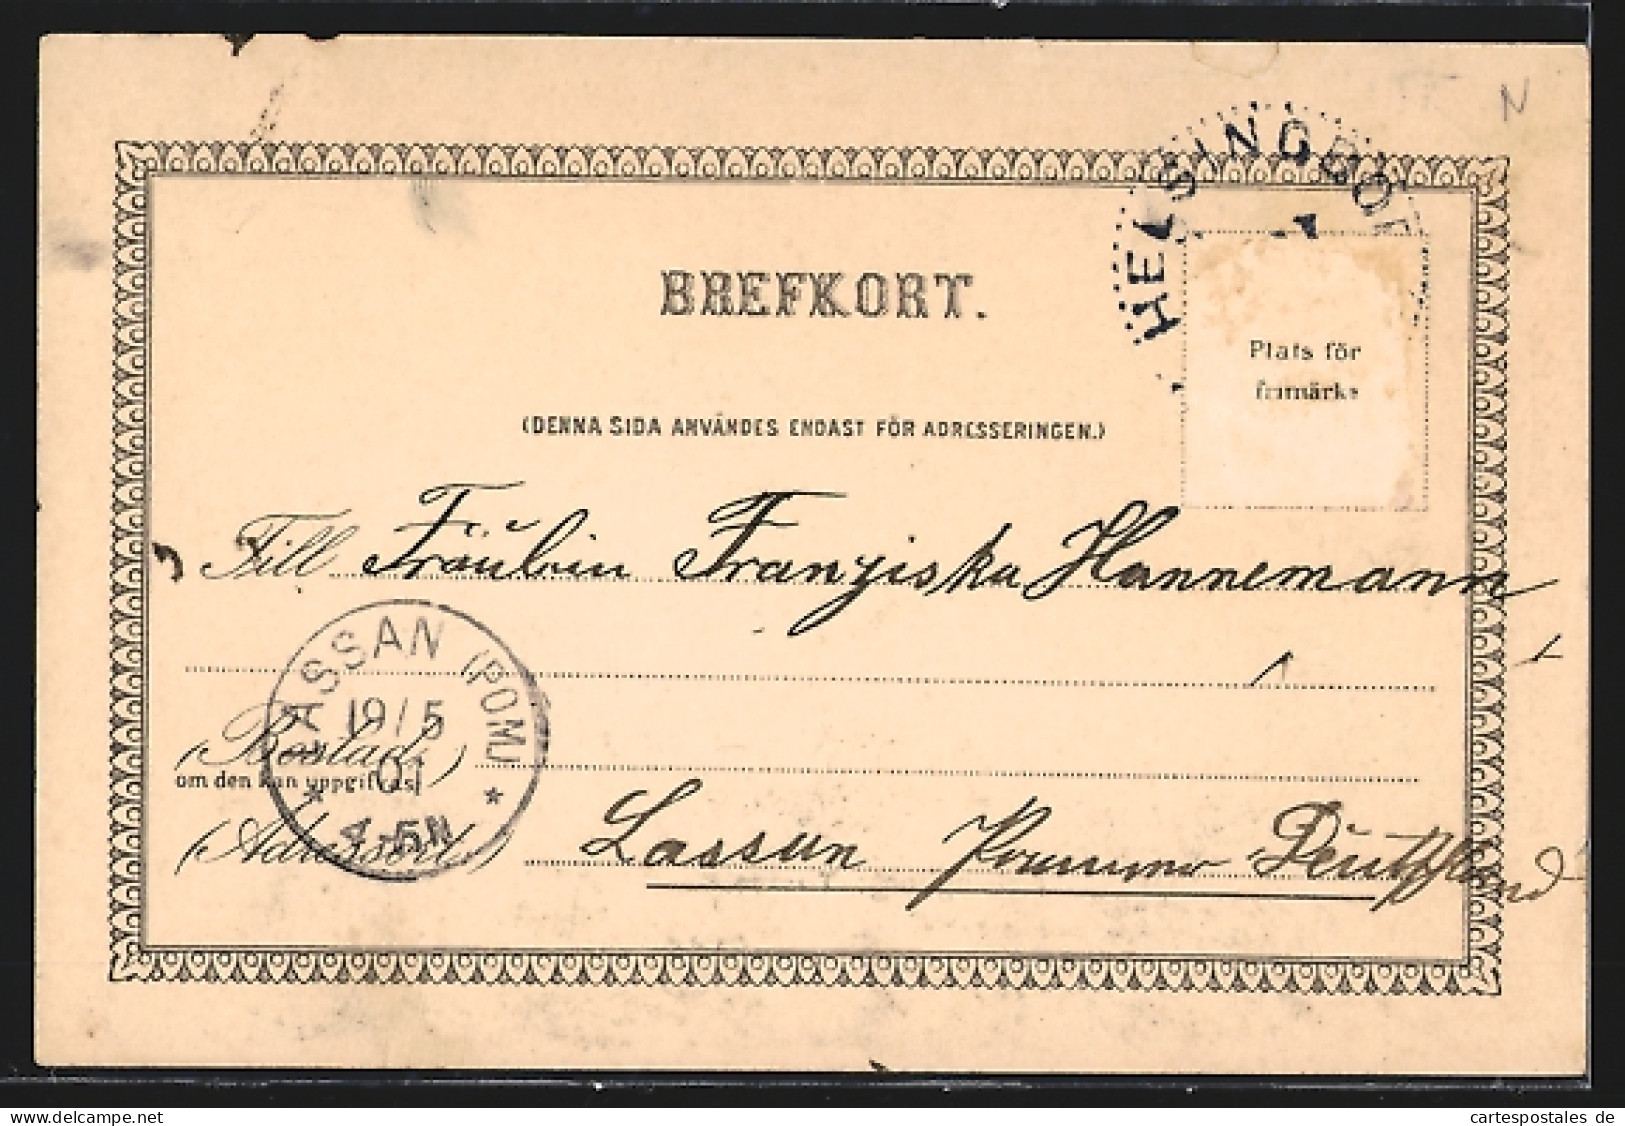 N
HELSINGBO
BREFKORT.
Plats för
frimärke
(DENNA SIDA ANVÄNDES ENDAST FÖR ADRESSERINGEN.)
Till Fräulein Franziska Hannemann
LASSAN (POM.)
19/5
01
4-5N
(Bostad)
om den kan uppgifvas
(Adressort) Lassan Pommern Deutschland
www.delcampe.net
cartespostales de